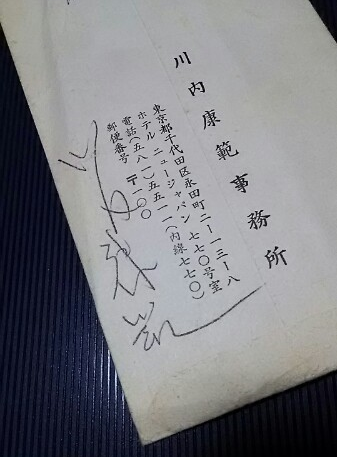 川内康範事務所
東京都千代田区永田町二ー一三ー八
ホテルニュージャパン七七〇号室
電話(五八一)五五一一(内線七七〇)
郵便番号 〒一〇〇